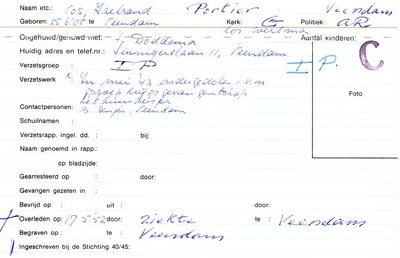 Naam etc.: Pos, IJsbrand Portier Veendam
Geboren: 25·6·'05 te Veendam Kerk: G Politiek: AR
Ongehuwd/gehuwd met: J. Doddema Aantal kinderen:
Huidig adres en telef.nr.: 11, Veendam
Verzetsgroep : I P I P. C
Verzetswerk : In mei '43 ondergedoken i.v.m.
Foto
Contactpersonen: B. Veendam
Schuilnaam :
Verzetsrapp. ingel. dd. : bij:
Naam genoemd in rapp.:
op bladzijde:
Gearresteerd op : door:
Gevangen gezeten in :
Bevrijd op : uit : door:
Overleden op : 17.5.'52 door: Ziekte te : Veendam
Begraven op : te : Veendam
Ingeschreven bij de Stichting 40/45: